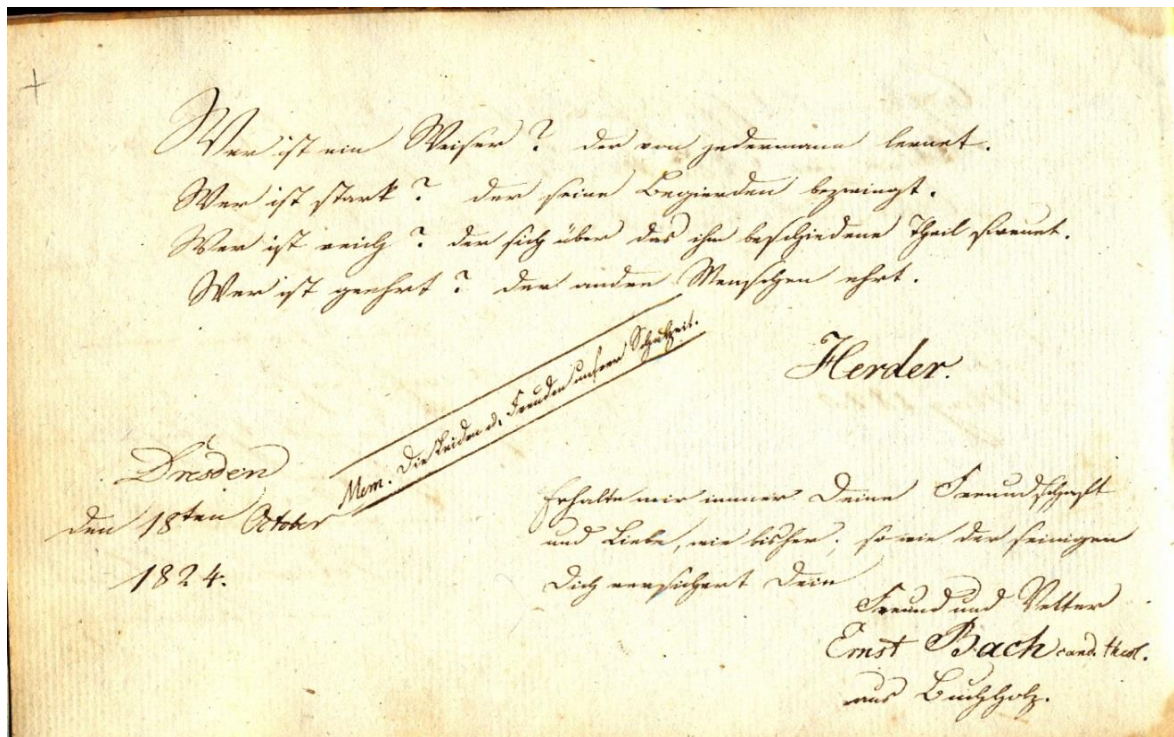 Wer ist ein Weiser? der von jedermann lernet.
Wer ist stark? der seine Begierden bezwingt.
Wer ist reich? der sich über das ihm beschiedene Theil freuet.
Wer ist geehrt? der andre Menschen ehrt.
Herder.
Mem. Die Leiden u. Freuden unsrer Schulzeit.
Dresden
den 18ten October
1824.
Erhalte mir immer Deine Freundschaft
und Liebe, wie bisher; so wie der seinigen
Dich versichert Dein
Freund und Vetter
Ernst Bach cand. theol.
aus Buchholz.